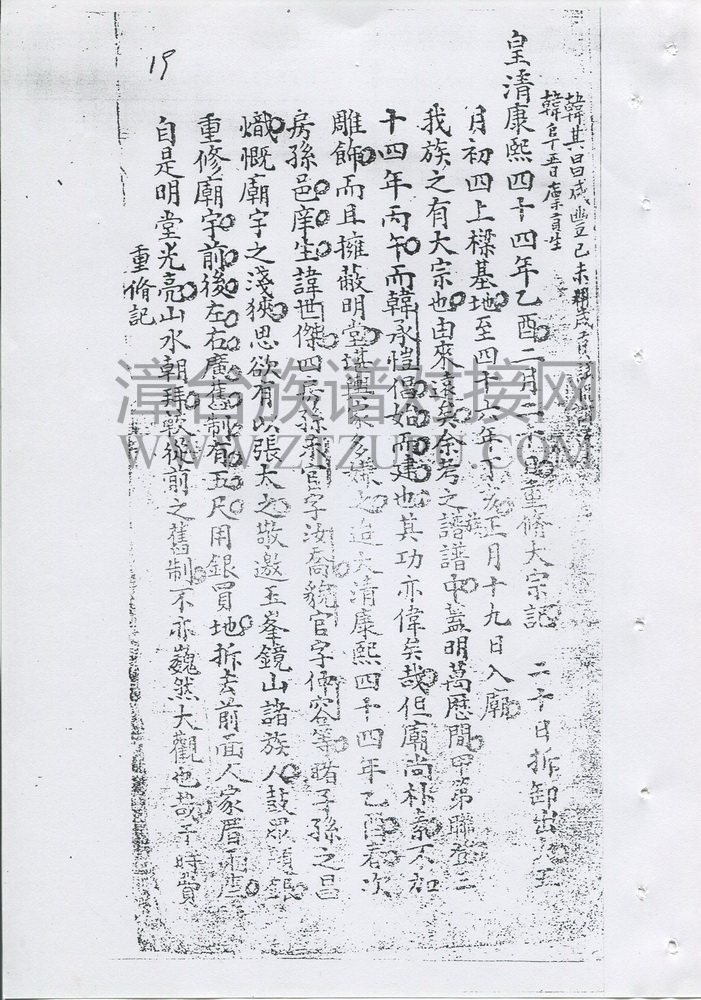 韓其昌咸豐己未科歲貢
韓阜五晋廩貢生
皇清康熙四十四年乙酉二月二六日重脩大宗記 二十日拆卸出火至
月初四上樑基地至四十六年丁亥正月十九日入廟
我族之有大宗也由來遠矣余考之族譜譜中蓋明萬歷間甲第聯登三
十四年丙午而韓永愷倡始而建也其功亦偉矣哉但廟尚朴素不加
雕飾而且擁蔽明堂堪輿家多嫌之迨大清康熙四十四年乙酉春次
房孫邑庠生諱世傑四房孫官字汝喬貌官字仲容等睹子孫之昌
熾慨廟宇之淺狹思欲有以張大之敬邀玉峯鏡山諸族人鼓眾題銀
重修廟宇前後左右廣舊制有五尺用銀買地拆去前面人家厝
自是明堂光亮山水朝拜較從前之舊制不亦巍然大觀也哉于時費
重脩記
19
漳台族谱对接网
WWW.ZTZUPU.COM